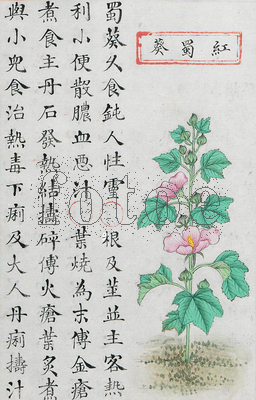 紅蜀葵
蜀葵久食鈍人性靈根及莖並主客熱
利小便散膿血惡汁葉燒為末傅金瘡
煮食主丹石發熱結擣碎傅火瘡葉炙煮
與小兒食治熱毒下痢及大人丹痢擣汁